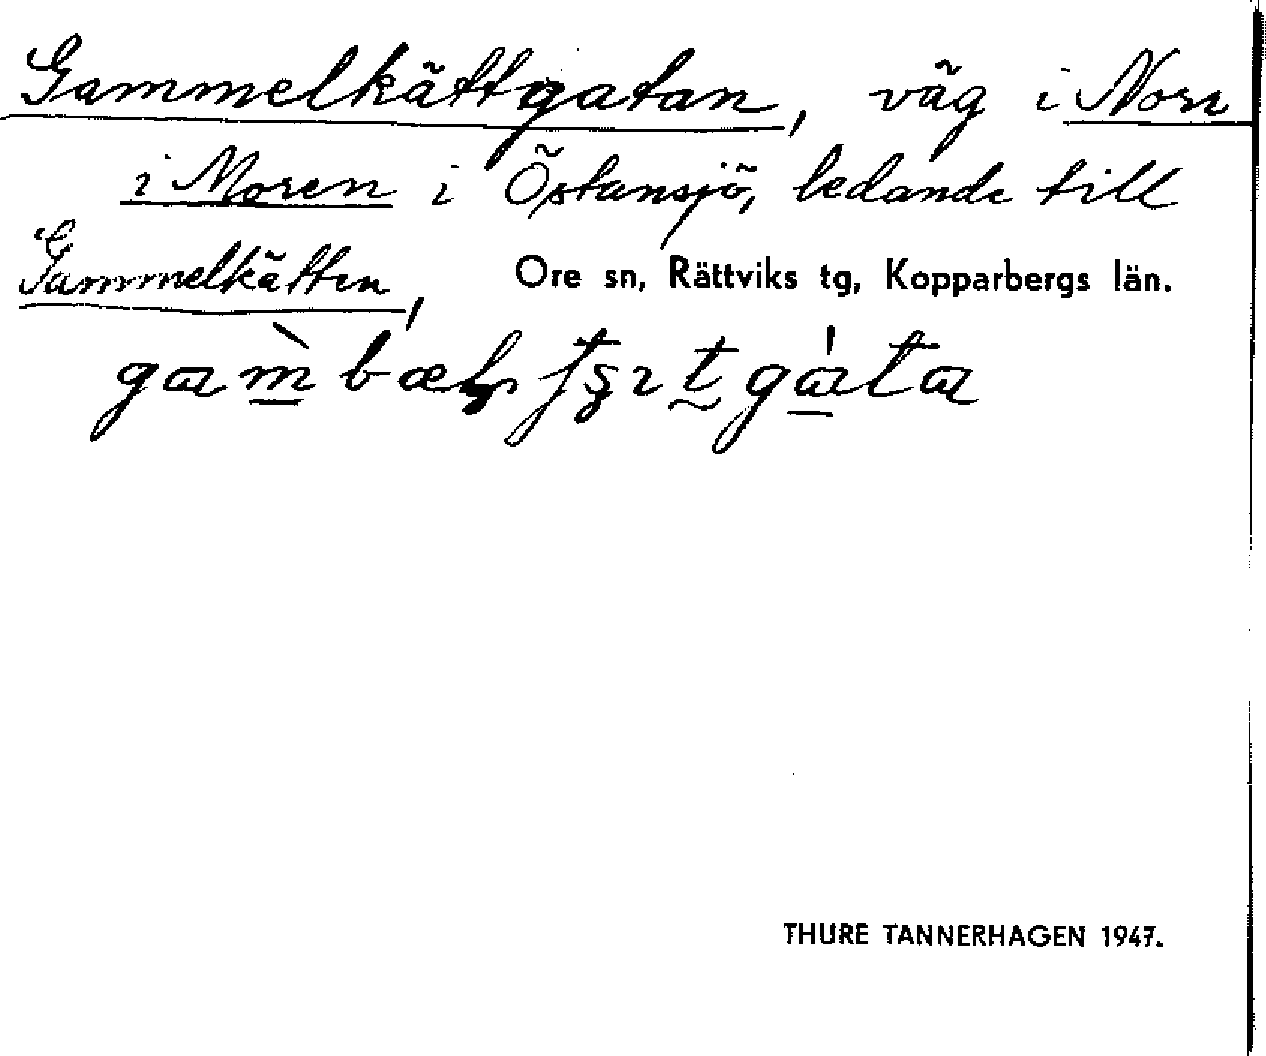 Gammelkättgatan, väg i Norr
i Moren i Östansjö, ledande till
Gammelkätten,
Ore sn, Rättviks tg, Kopparbergs län.
THURE TANNERHAGEN 1947.